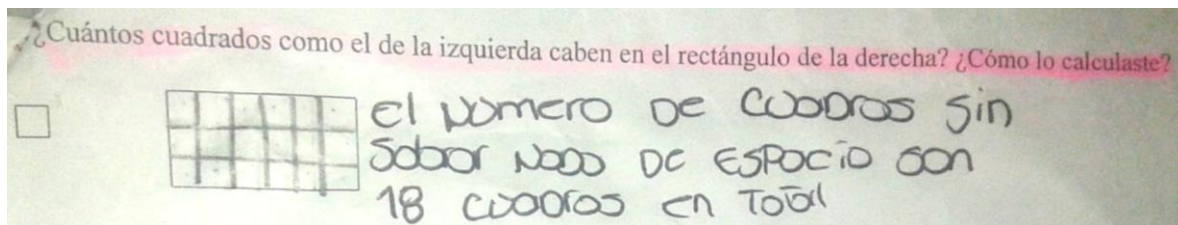 ¿Cuántos cuadrados como el de la izquierda caben en el rectángulo de la derecha? ¿Cómo lo calculaste?
El número de cuadros sin
sobrar nada de espacio son
18 cuadros en total